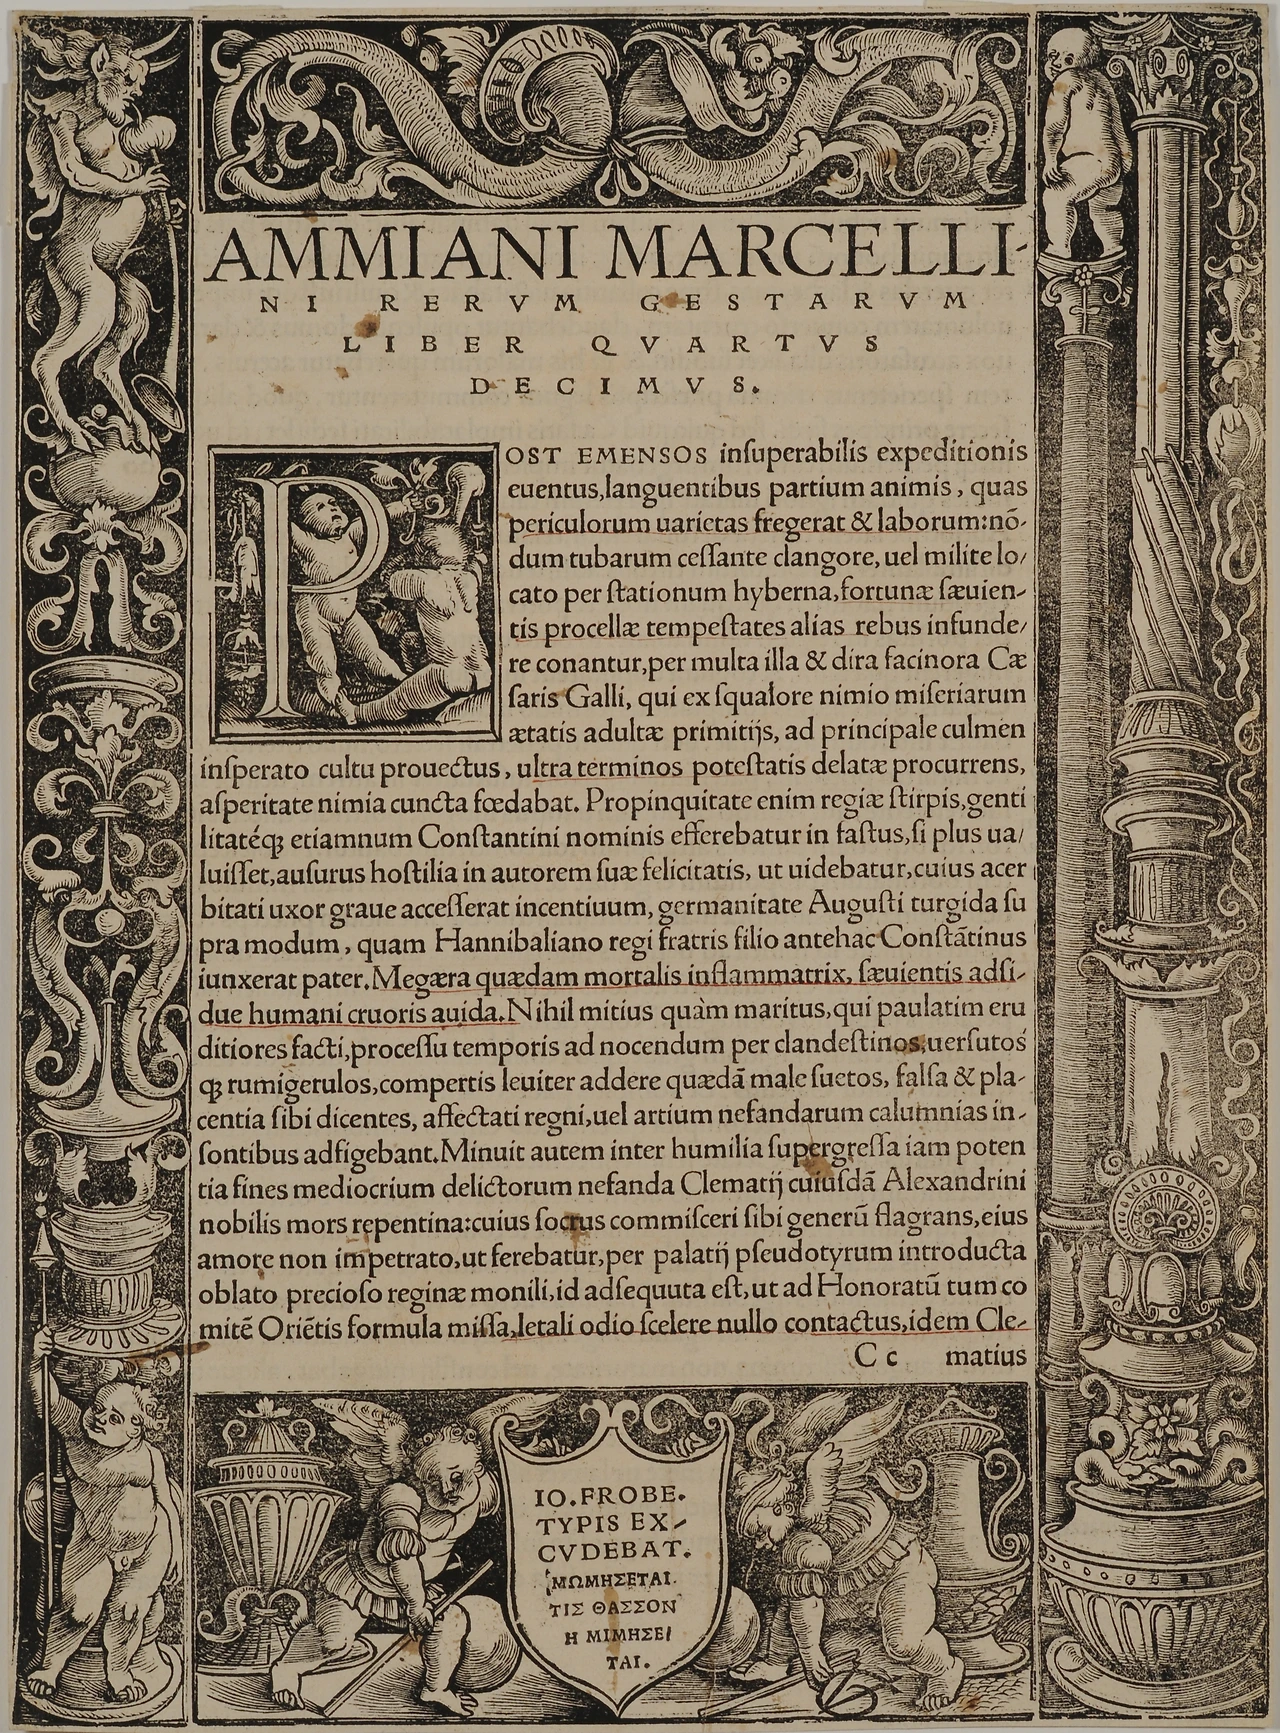 AMMIANI MARCELLI-
NI RERVM GESTARVM
LIBER QVARTVS
DECIMVS.
POST EMENSOS inſuperabilis expeditionis
euentus,languentibus partium animis, quas
periculorum uarietas fregerat & laborum:nõ-
dum tubarum ceſſante clangore, uel milite lo/
cato per ſtationum hyberna,fortunæ ſæuien-
tis procellæ tempeſtates alias rebus infunde/
re conantur,per multa illa & dira facinora Cæ
ſaris Galli, qui ex ſqualore nimio miſeriarum
ætatis adultæ primitijs, ad principale culmen
inſperato cultu prouectus, ultra terminos poteſtatis delatæ procurrens,
aſperitate nimia cuncta fœdabat. Propinquitate enim regiæ ſtirpis,genti
litatéqꝫ etiamnum Conſtantini nominis efferebatur in faſtus,ſi plus ua/
luiſſet,auſurus hoſtilia in autorem ſuæ felicitatis, ut uidebatur,cuius acer
bitati uxor graue acceſſerat incentiuum, germanitate Auguſti turgida ſu
pra modum, quam Hannibaliano regi fratris filio antehac Conſtãtinus
iunxerat pater.Megæra quædam mortalis inflammatrix, ſæuientis adſi-
due humani cruoris auida.Nihil mitius quàm maritus,qui paulatim eru
ditiores facti,proceſſu temporis ad nocendum per clandeſtinos,uerſutos
qꝫ rumigerulos,compertis leuiter addere quædã male ſuetos, falſa & pla-
centia ſibi dicentes, affectati regni,uel artium nefandarum calumnias in-
ſontibus adfigebant.Minuit autem inter humilia ſupergreſſa iam poten
tia fines mediocrium delictorum nefanda Clematij cuiuſdã Alexandrini
nobilis mors repentina:cuius ſocrus commiſceri ſibi generũ flagrans,eius
amore non impetrato,ut ferebatur,per palatij pſeudotyrum introducta
oblato precioſo reginæ monili,id adſequuta eſt, ut ad Honoratũ tum co
mitẽ Oriẽtis formula miſſa,letali odio ſcelere nullo contactus,idem Cle-
C c matius
IO.FROBE.
TYPIS EX-
CVDEBAT.
ΜΩΜΗΣΕΤΑΙ
ΤΙΣ ΘΑΣΣΟΝ
Η ΜΙΜΗΣΕ/
ΤΑΙ.